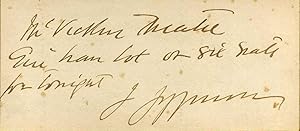 McVickers Theatre
Give han lot or six seats
for tonight
J Jefferson